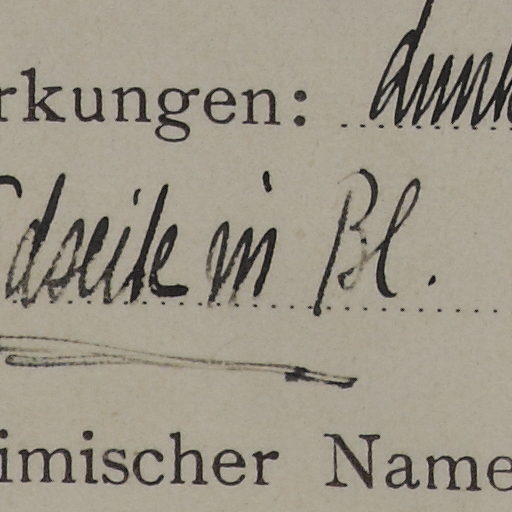 rkungen: dunk
dseite in Bl.
imischer Name